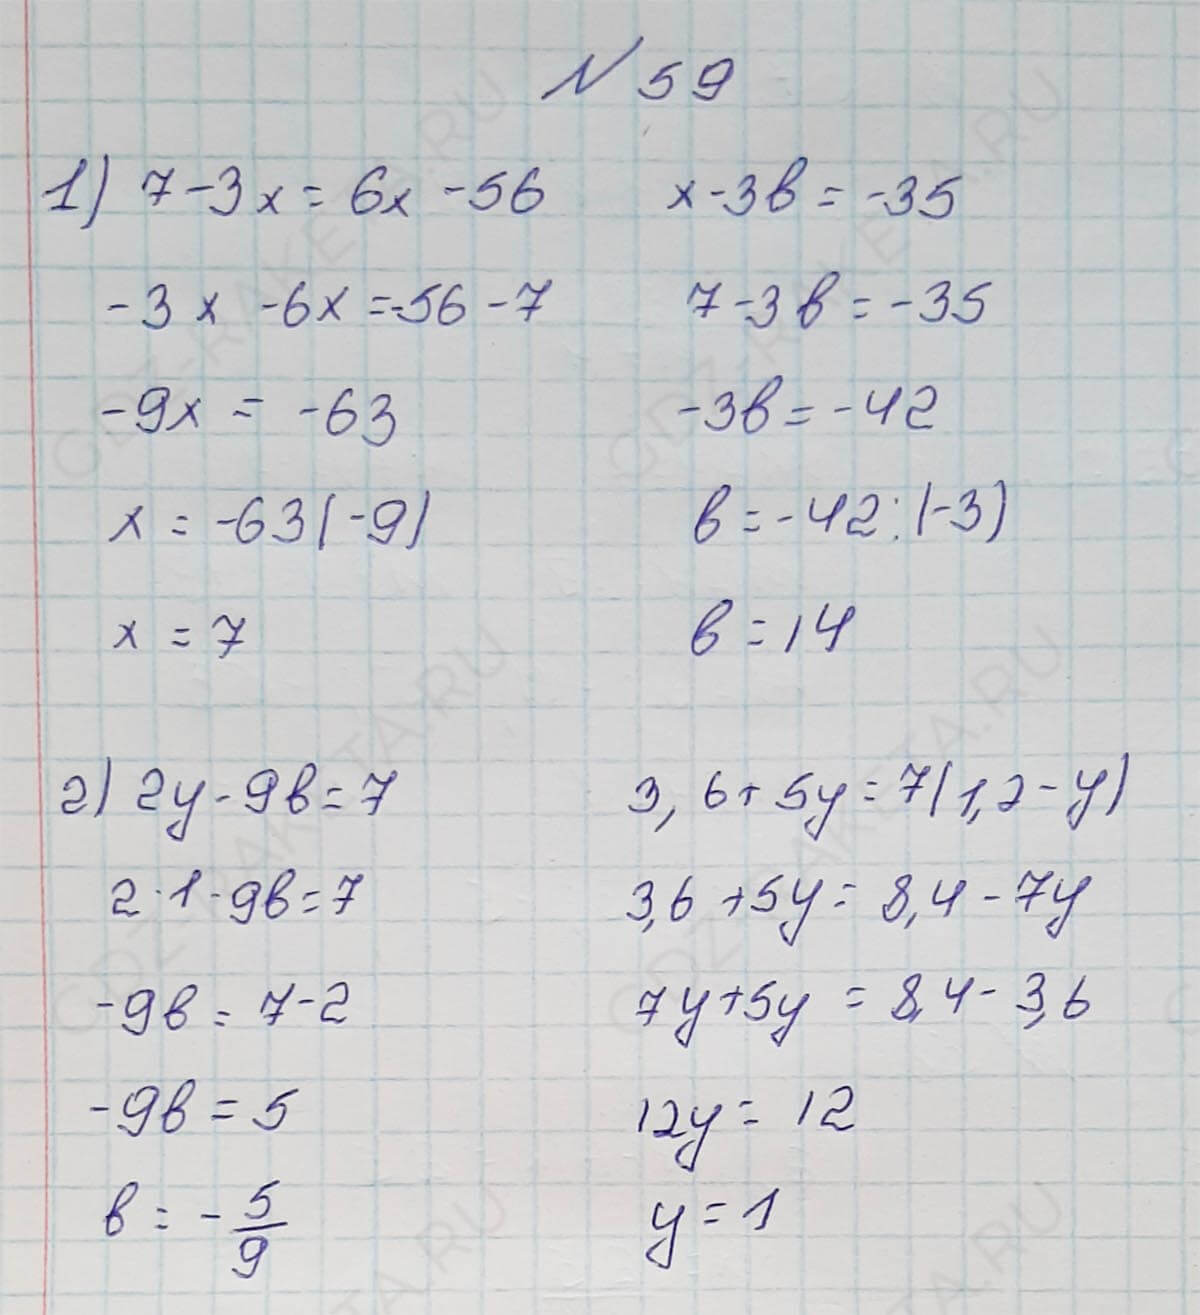 № 59
1) 7-3x = 6x -56
-3x -6x = -56 -7
-9x = -63
x = -63(-9)
x = 7
x-3в = -35
7-3в = -35
-3в = -42
в = -42:(-3)
в = 14
2) 2y - 9в = 7
2·1 - 9в = 7
-9в = 7-2
-9в = 5
в = -5/9
3,6 + 5y = 7(1,2-y)
3,6 + 5y = 8,4 - 7y
7y + 5y = 8,4 - 3,6
12y = 12
y = 1
GDZ-RAKETA.RU
GDZ-RAKETA.RU
GDZ-RAKETA.RU
GDZ-RAKETA.RU